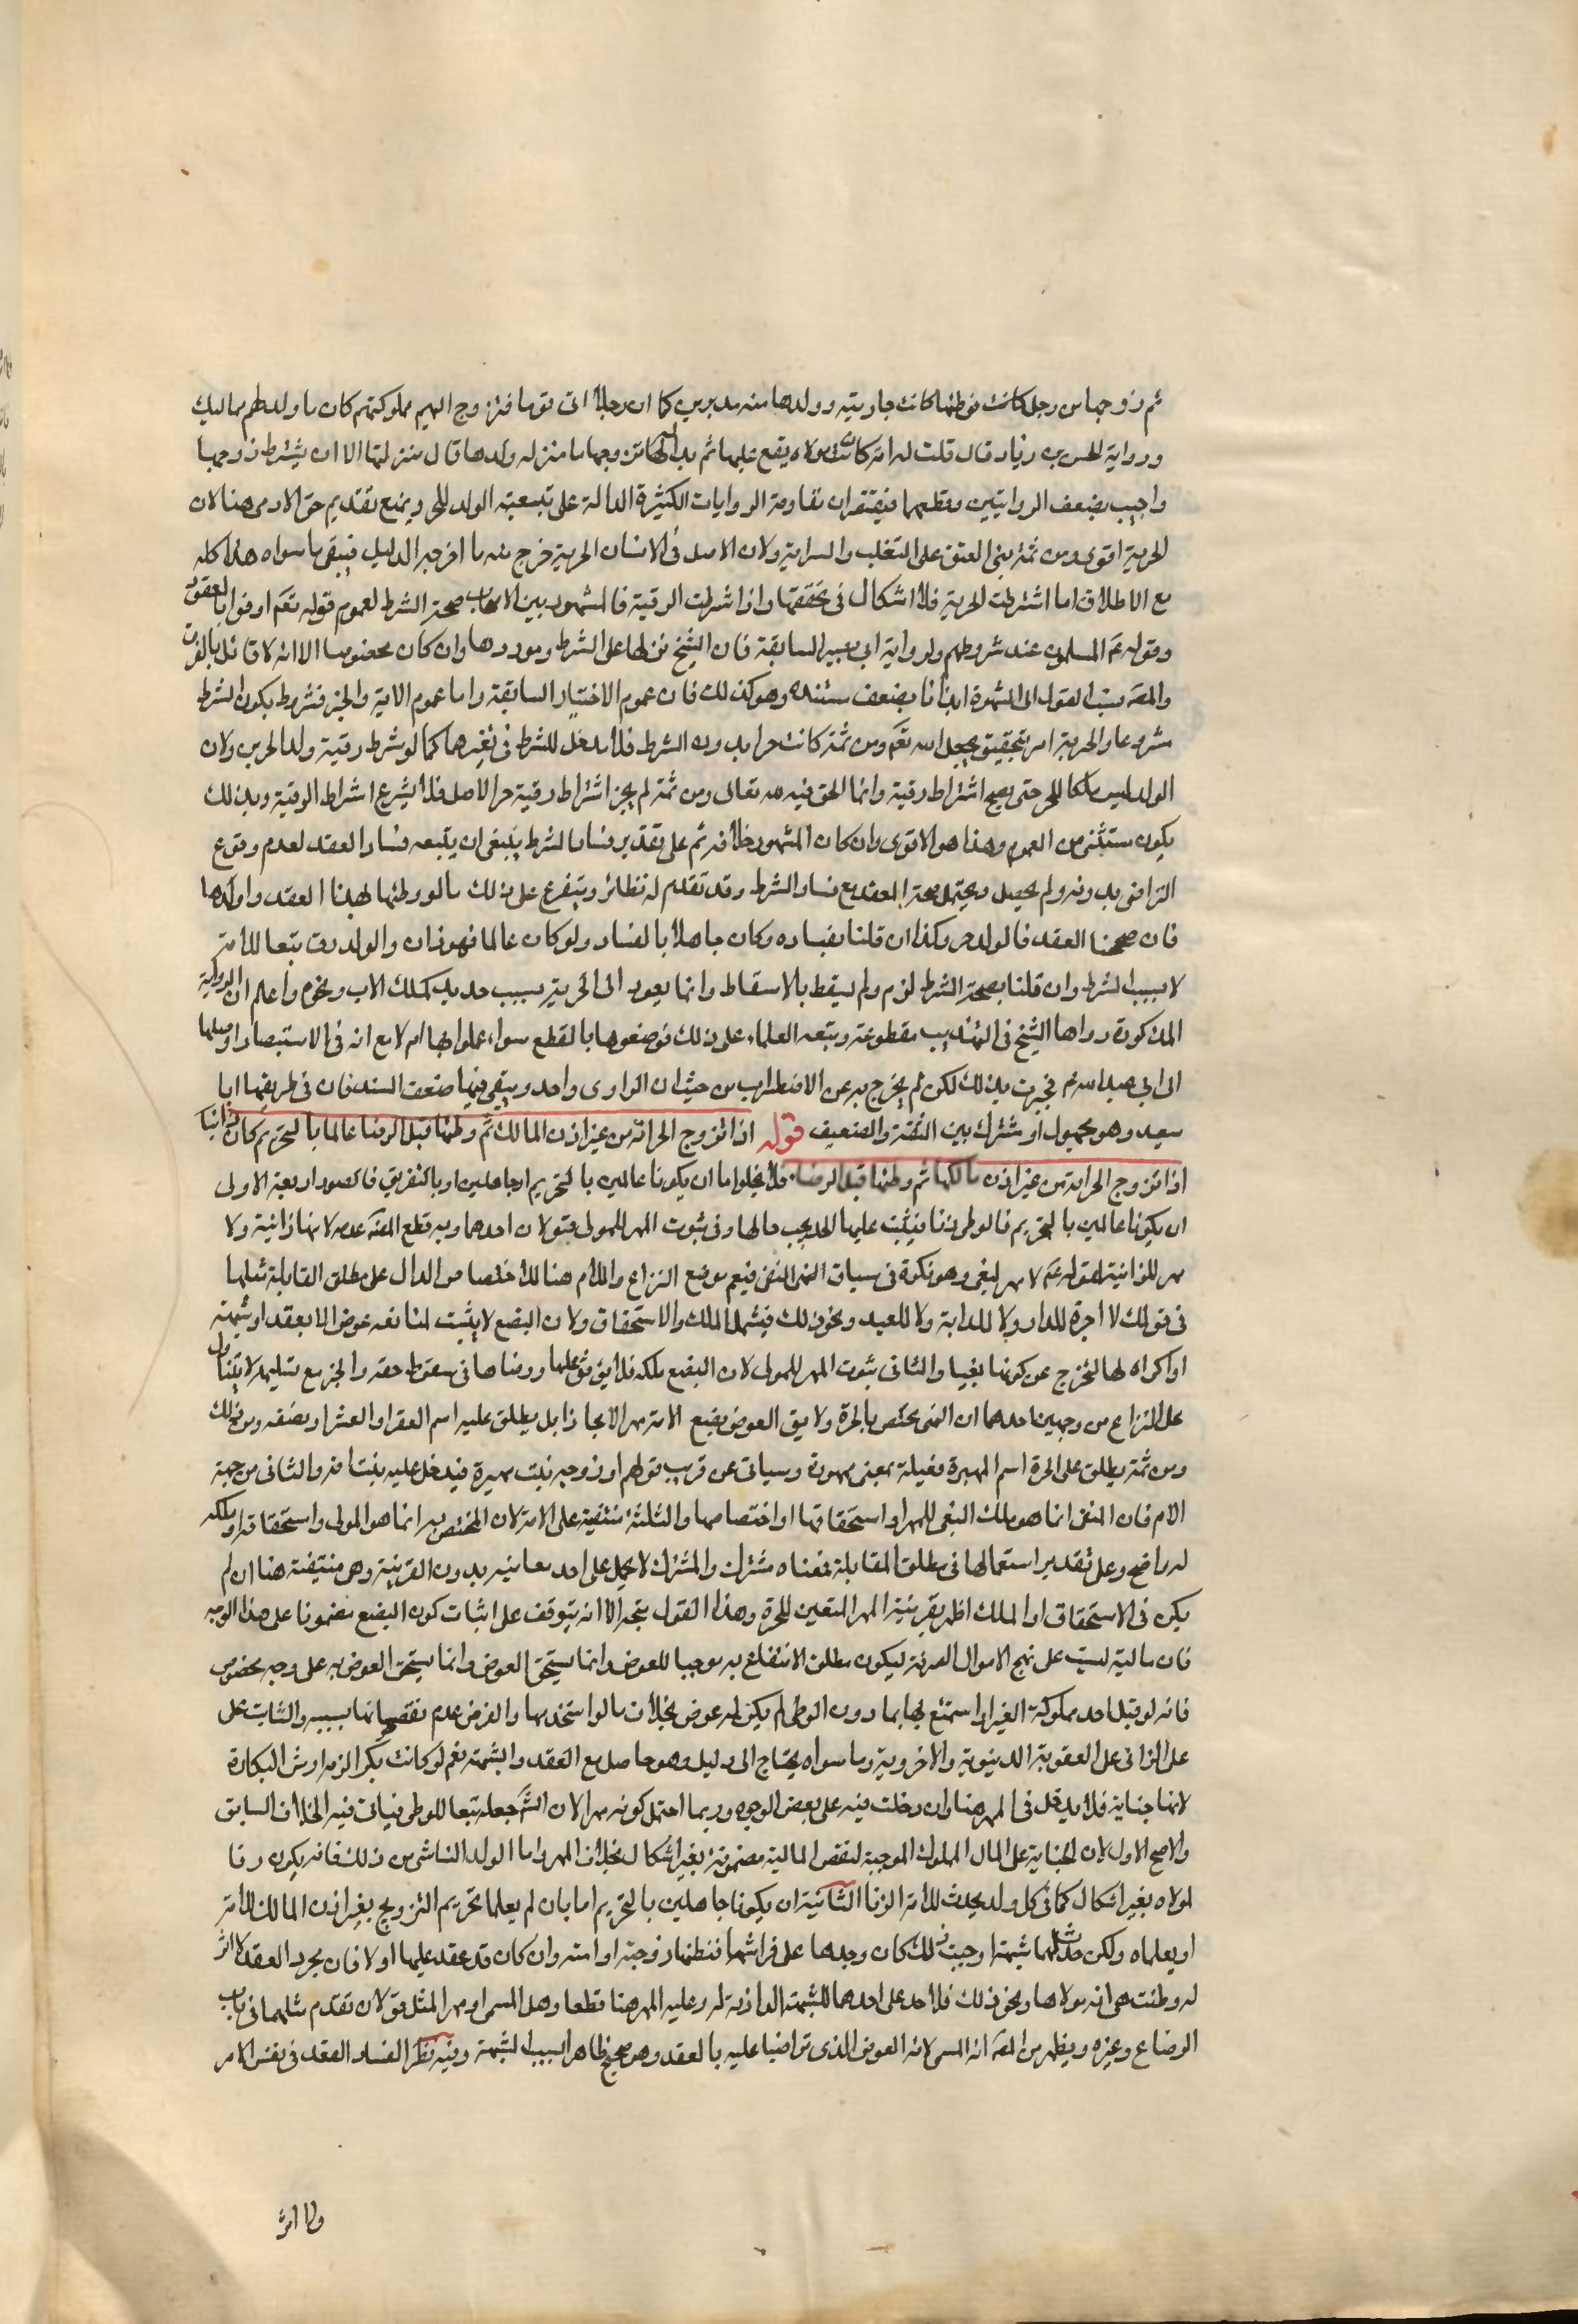 ثم زوجها من رجل كانت فوطئها كانت جاريته وولدها منه مدبرين كما ان رجلا اتى قوما فتزوج اليهم مملوكتهم كان ما ولد لهم مماليك
ورواية الحسن بن زياد قال قلت له امة كان مولاه يقع عليها ثم بدا له فزوجها ما منزلة ولدها قال منزلتها الا ان يشترط زوجها
واجيب بضعف الروايتين وقطعهما فيفتقران مقاومة الروايات الكثيرة الدالة على تبعية الولد للحر ويمنع تقديم حق الادمى هنا لان
الحرية اقوى ومن ثمة بنى العتق على التغليب والسراية ولان الاصل فى الانسان الحرية خرج منه ما اخرجه الدليل فيبقى ما سواه هذا كله
مع الاطلاق اما اشترطت الحرية فلا اشكال فى تحققها واذا اشرطت الرقية فالمشهور بين الاصحاب صحة الشرط لعموم قوله تعم اوفوا بالعقود
وقوله عم المسلمون عند شروطهم ولرواية ابى بصير السابقة فان الشيخ نزلها على الشرط وموردها وان كان مخصوصا الا انه لا قائل بالفرق
والمصَ نسب القول الى الشهرة ايذانا بضعف سنده وهو كذلك فان عموم الاخبار السابقة واما عموم الاية والخبر فمشروط بكون الشرط
مشروعا والحرية امر يتحقيق بجعل الله تعم ومن ثمة كانت حرا بدون الشرط فلا مدخل للشرط فى تغيرها كما لو شرط رقية ولد الحرين ولان
الولد ليس ملكا للحر حتى يصح اشتراط رقية وانما الحق فيه لله تعالى ومن ثمة لم يجز اشتراط رقية حر الاصل فلا يشرع اشراط الرقية وبذلك
يكون مستثنى من العموم وهذا هو الاقوى وان كان المشهور خلافه ثم على تقدير فساد الشرط ينبغى ان يتبعه فساد العقد لعدم وقوع
التراضى بدونه ولم يحصل ويحتمل صحة العقد مع فساد الشرط وقد تقدم له نظائر ويتفرع على ذلك ما لو وطئها بهذا العقد واولدها
فان صححنا العقد فالولد حر وكذا ان قلنا بفساده وكان جاهلا بالفساد ولو كان عالما فهو زان والولد رق تبعا للامة
لا بسبب الشرط وان قلنا بصحة الشرط لزم ولم يسقط بالاسقاط وانما يعود الى الحرية بسبب جديد كملك الاب ونحوه واعلم ان الرواية
المذكورة رواها الشيخ فى التهذيب مقطوعة وتبعه العلماء على ذلك فوصفوها بالقطع سواء عملوا بها ام لا مع انه فى الاستبصار اوصلها
الى ابى عبد الله عم فجبرت بذلك لكن لم يخرج به عن الاضطراب من حيث ان الراوى واحد ويبقى فيها ضعف السند فان فى طريقها ابا
سعيد وهو مجهول او مشترك بين الثقة والضعيف قوله اذا تزوج الحر امة من غير اذن المالك ثم وطئها قبل الرضا عالما بالتحريم كان زانيا
اذا تزوج الحر امة من غير اذن مالكها ثم وطئها قبل الرضا فلا يخلوا اما ان يكونا عالمين بالتحريم او جاهلين او بالتفريق فالصور اربعة الاولى
ان يكونا عالمين بالتحريم فالوطى زنا فيثبت عليهما الحد بحسب حالهما وفى ثبوت المهر للمولى قولان احدهما وبه قطع المصَ عدمه لانها زانية ولا
مهر للزانية لقوله عم لا مهر لبغى وهو نكرة فى سياق النفى فيعم موضع النزاع واللام هنا للاختصاص الدال على مطلق المقابلة مثلها
فى قولك لا اجرة للدار ولا للدابة ولا للعبد ونحو ذلك فيشمل الملك والاستحقاق ولان البضع لا يثبت لمنافعه عوض الا بعقد او شبهة
او اكراه لها لتخرج عن كونها بغيا والثانى ثبوت المهر للمولى لان البضع ملكه فلا يؤثر علمها ورضاها فى سقوط حقه والخبر مع تسليمه لا يتناول
محل النزاع من وجهين احدهما ان المهر مختص بالحرة ولا يق لعوض بضع الامة مهر الا مجازا بل يطلق عليه اسم العقر او العشر او نصفه ونحو ذلك
ومن ثمة يطلق على الحرة اسم المهيرة فعيلة بمعنى مهورة وسياتى عن قريب قولهم لو زوجه بنت مهيرة فيدخل عليه بنت امة والثانى من جهة
اللام فان المنفى انما هو ملك البغى للمهر او استحقاقها او اختصاصها والثلثة منتفية على الامة لان المختص به انما هو المولى واستحقاقه او ملكه
له واضح وعلى تقدير استعمالها فى مطلق المقابلة فمعناه مشترك والمشترك لا يحمل على احد معانيه بدون القرينة وهى منتفية هنا ان لم
يكن فى الاستحقاق او الملك اظهر بقرينة المهر المتعين للحرة وهذا القول يتجه الا انه يتوقف على اثبات كون البضع مضمونا على هذا الوجه
فان ماليته ليست على نهج الاموال الصرفة ليكون مطلق الانتفاع به موجبا للعوض وانما يستحق العوض وانما يستحق العوض به على وجه مخصوص
فانه لو قبل احد مملوكة الغير او استمتع بها بما دون الوطى لم يكن له عوض بخلاف ما لو استخدمها والفرض عدم نقصانها بسببه والثابت على
على الزانى على العقوبة الدنيوية والاخروية وما سواه يحتاج الى دليل وهو حاصل مع العقد والشبهة نعم لو كانت بكرا لزمه ارش البكارة
لانها جناية فلا يدخل فى المهر هنا وان دخلت فيه على بعض الوجوه وربما احتمل كونه مهرا لان الشَ جعله تبعا للوطى فياتى فيه الخلاف السابق
والاصح الاول لان الجناية على المال المملوك الموجبة لنقص المالية مضمونة بغير اشكال بخلاف المهر واما الولد الناشى من ذلك فانه يكون رقا
لمولاه بغير اشكال كما فى كل ولد يحدث للامة الزنا الثانية ان يكونا جاهلين بالتحريم اما بان لم يعلما تحريم التزويج بغير اذن المالك للامة
او يعلماه ولكن حدث لهما شبهة اوجبت ذلك كان وجدها على فراشها فظنها زوجته او امته وان كان قد عقد عليها اولا فان مجرد العقد لا اثر
له وظنت هى انه مولاها ونحو ذلك فلا حد على احدهما للشبهة الدارئة له وعليه المهر هنا قطعا وهل المسمى او مهر المثل قولان تقدم مثلهما فى باب
الرضاع وغيره ويظهر من المصَ انه المسمى لانه العوض الذى تراضيا عليه بالعقد وهو صحيح ظاهرا بسبب الشبهة وفيه نظر لفساد العقد فى نفس الامر
ولا اثر